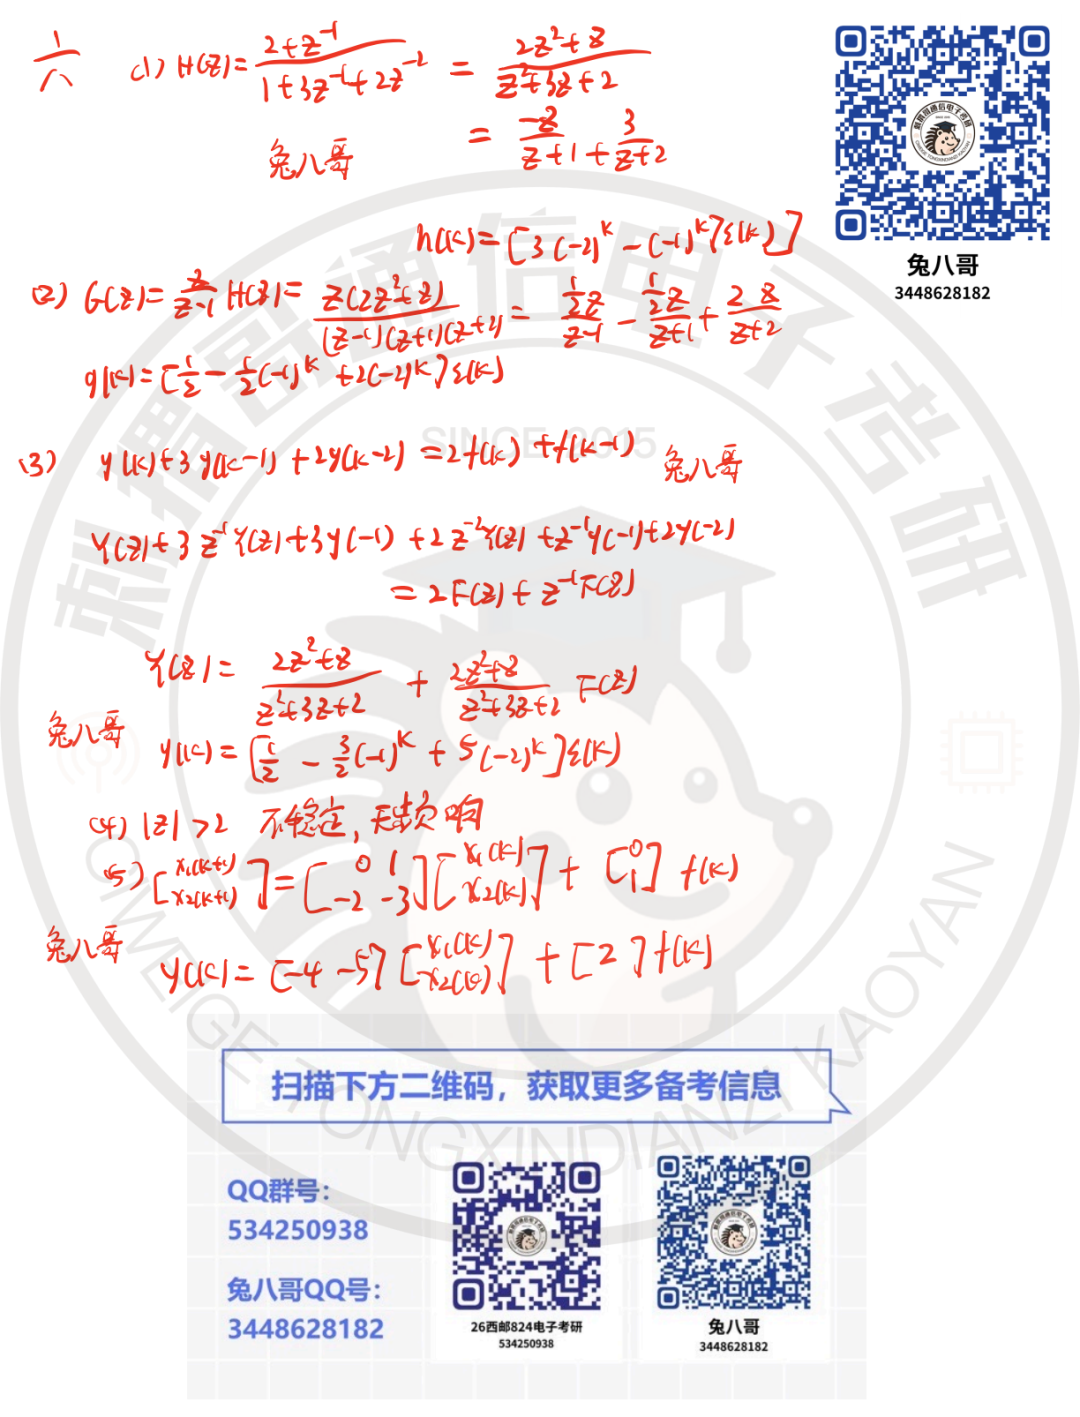 六 (1) H(z)= (2+z^-1)/(1+3z^-1+2z^-2) = (2z²+z)/(z²+3z+2)
= -z/(z+1) + 3/(z+2)
兔八哥
h(k)=[3(-2)^k-(-1)^k]ε(k)]
兔八哥
3448628182
(2) G(z)= z/(z-1) H(z)= z(2z²+z)/((z-1)(z+1)(z+2)) = ½z/(z-1) - ½z/(z+1) + 2z/(z+2)
g(k)=[½-½(-1)^k+2(-2)^k]ε(k)
SINCE 2015
(3) y(k)+3y(k-1)+2y(k-2)=2f(k)+f(k-1)
兔八哥
Y(z)+3z^-1Y(z)+3y(-1)+2z^-2Y(z)+z^-1y(-1)+2y(-2)
=2F(z)+z^-1F(z)
Y(z)= (2z²+z)/(z²+3z+2) + (2z²+z)/(z²+3z+2) F(z)
兔八哥
y(k)=[½-3/2(-1)^k+5(-2)^k]ε(k)
(4) |z|>2 不稳定,
(5) [x₁(k+1) x₂(k+1)]=[0 1 -2 -3][x₁(k) x₂(k)]+[0 1]f(k)
兔八哥
y(k)=[-4 -5][x₁(k) x₂(k)]+[2]f(k)
刺猬哥通信电子考研
CIWEIGE TONGXINDIANZI KAOYAN
扫描下方二维码，获取更多备考信息
QQ群号:
534250938
兔八哥QQ号:
3448628182
26西邮824电子考研
534250938
兔八哥
3448628182